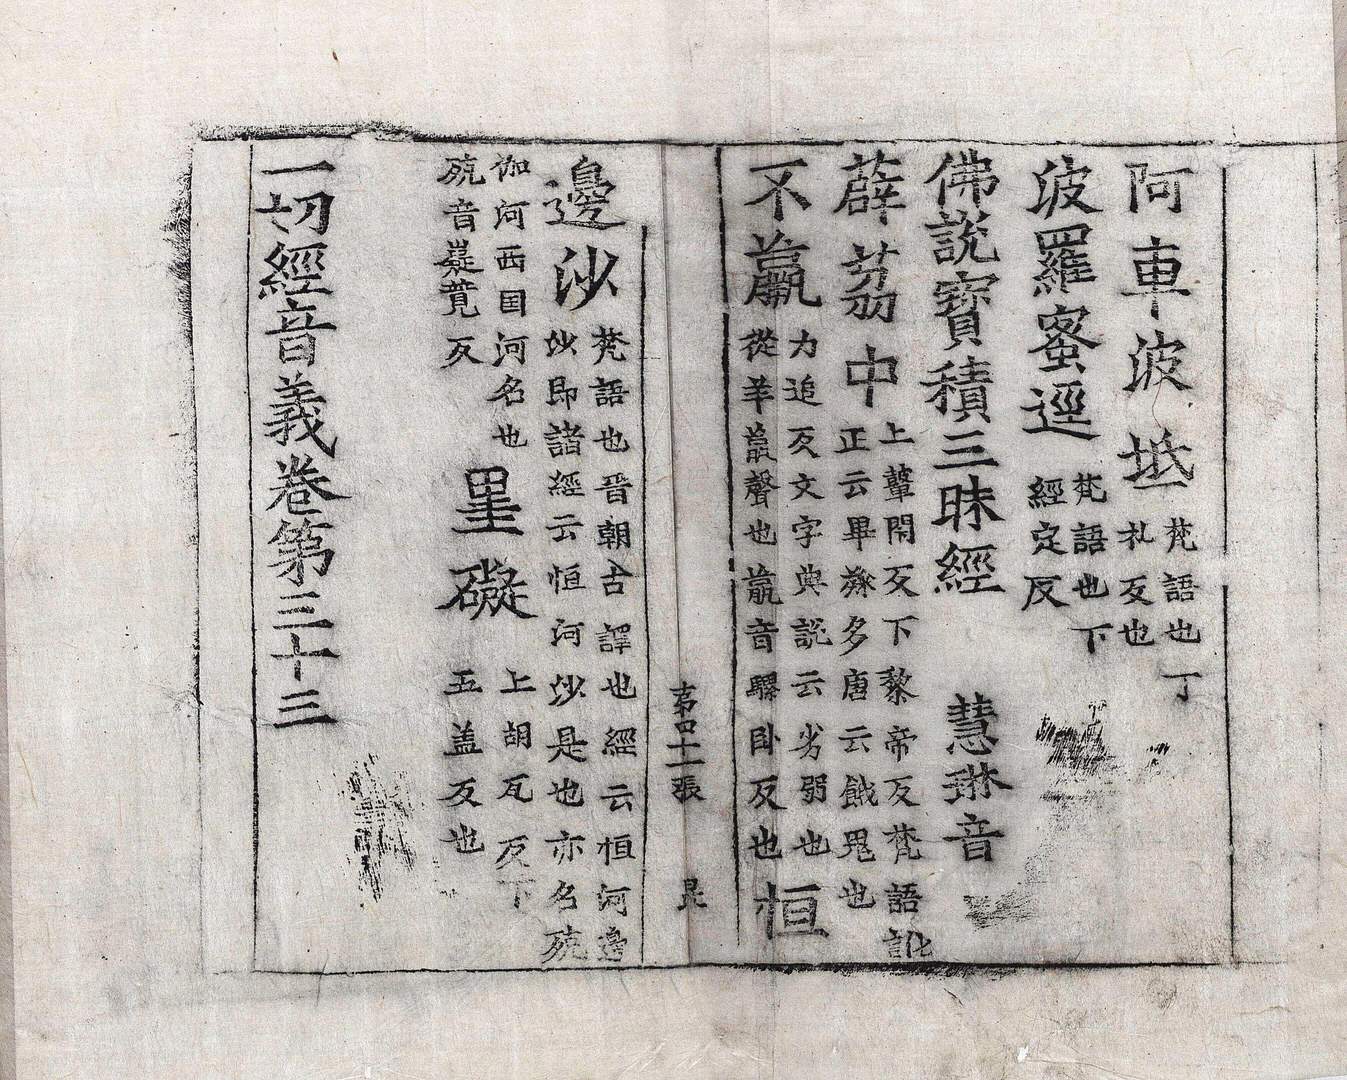 阿車波坻梵語也丁
札反也
波羅蜜逕梵語也下
經定反
佛說寳積三昧經 慧琳音
薜荔中上鞞閇反下黎帝反梵語訛
正云畢𥻘多唐云餓鬼也
不羸力追反文字典說云劣弱也
從羊𦝠聲也𦝠音騾卧反也 恒
第四十一張 昃
邊沙梵語也晉朝古譯也經云恒河邊
沙即諸經云恒河沙是也亦名殑
伽河西国河名也 罣礙上胡瓦反下
殑音凝蒄反 五盖反也
一切經音義卷第三十三